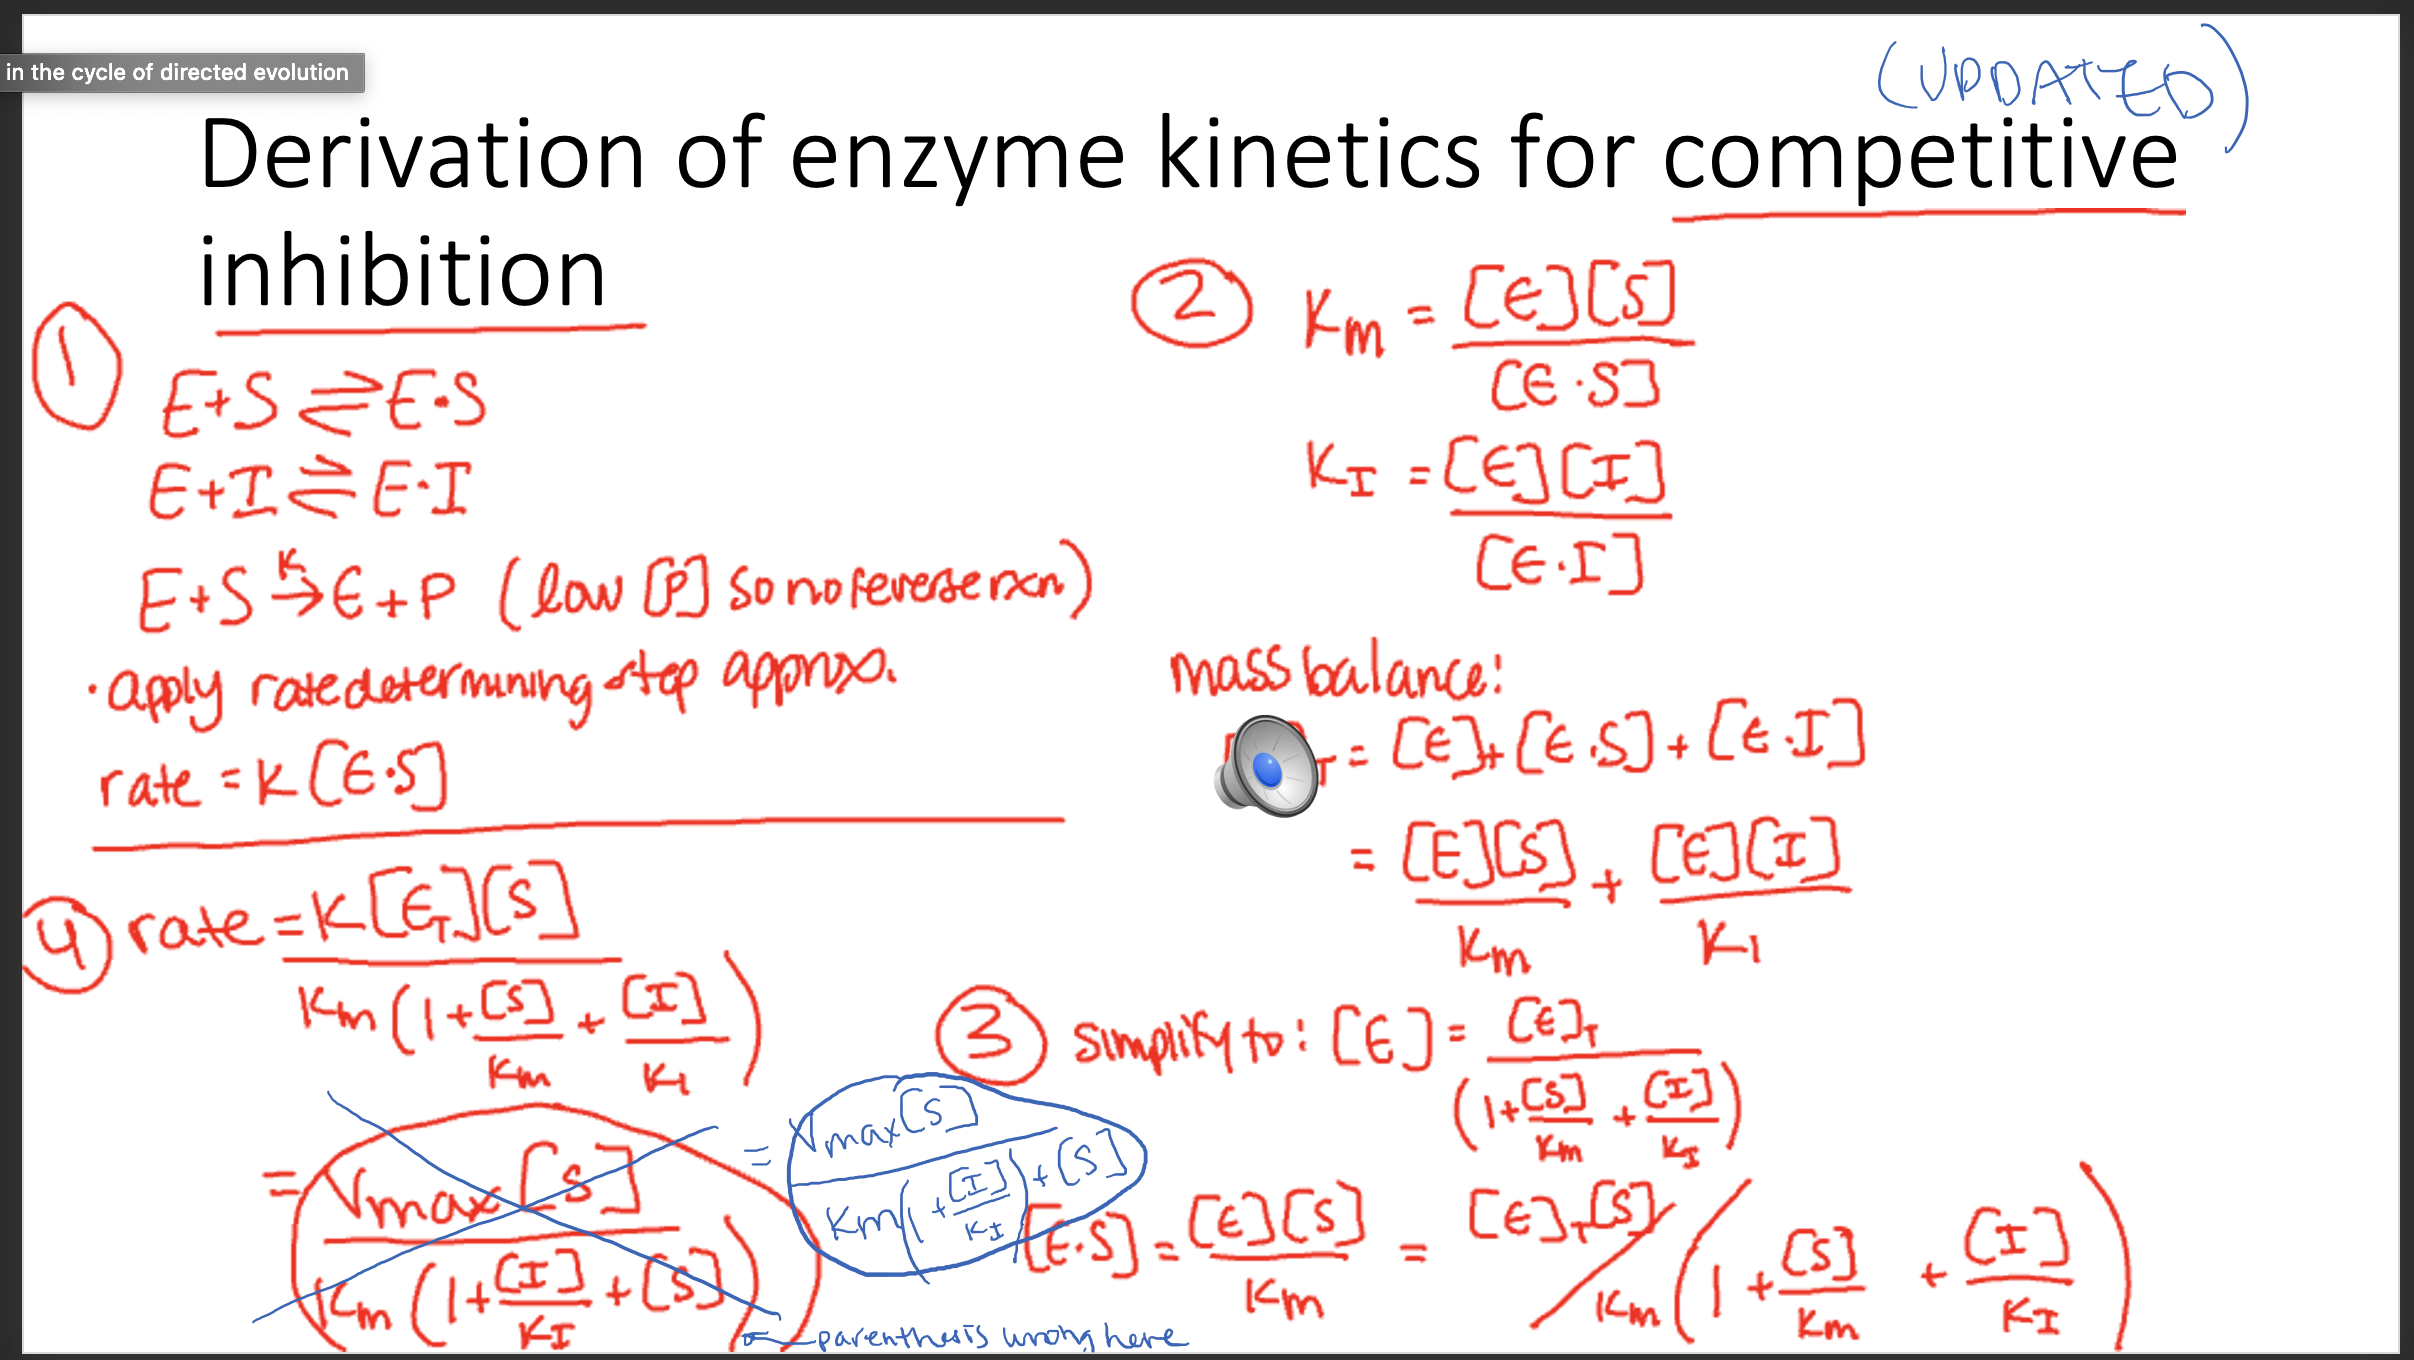 in the cycle of directed evolution
(UPDATED)
Derivation of enzyme kinetics for competitive
inhibition
1
E+S ⇌ E·S
E+I ⇌ E·I
E+S →K E+P (low [P] so no reverse rxn)
· apply rate determining step approx.
rate = K[E·S]
2
Km = [E][S] / [E·S]
KI = [E][I] / [E·I]
mass balance:
T = [E]+[E·S]+[E·I]
= [E][S]/Km + [E][I]/KI
3 simplify to: [E] = [E]T / (1+[S]/Km + [I]/KI)
[E·S] = [E][S]/Km = [E]T[S] / Km(1+[S]/Km + [I]/KI)
4 rate = K[ET][S] / Km(1+[S]/Km + [I]/KI)
= Vmax[S] / Km(1+[I]/KI + [S])
= Vmax[S] / Km(1+[I]/KI)+[S]
← parenthesis wrong here